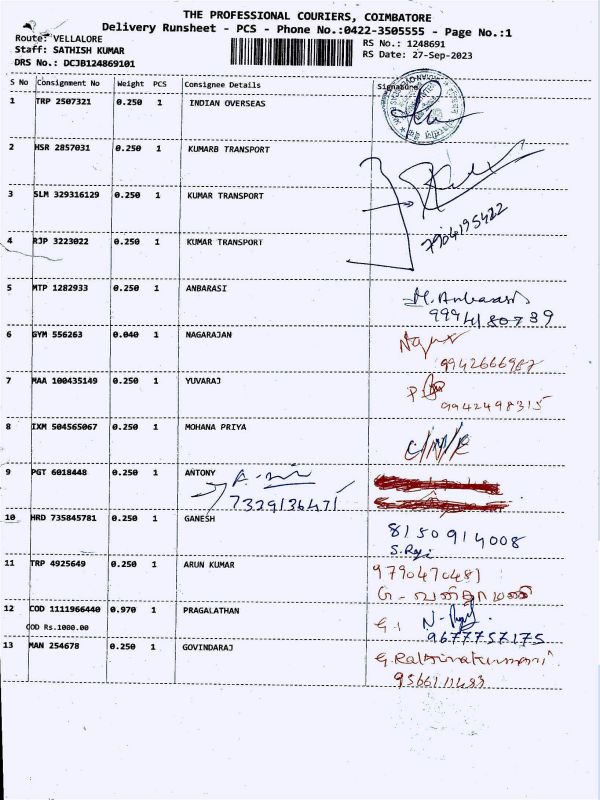 THE PROFESSIONAL COURIERS, COIMBATORE
Delivery Runsheet - PCS - Phone No.:0422-3505555 - Page No.:1
Route: VELLALORE
Staff: SATHISH KUMAR
DRS No.: DCJB124869101
RS No.: 1248691
RS Date: 27-Sep-2023
S No Consignment No Weight PCS Consignee Details Signature
1 TRP 2507321 0.250 1 INDIAN OVERSEAS
2 HSR 2857031 0.250 1 KUMARB TRANSPORT
3 SLM 329316129 0.250 1 KUMAR TRANSPORT
7904195422
4 RJP 3223022 0.250 1 KUMAR TRANSPORT
5 MTP 1282933 0.250 1 ANBARASI M. Anbarasi
9994180739
6 GYM 556263 0.040 1 NAGARAJAN
9942666987
7 MAA 100435149 0.250 1 YUVARAJ
9942498315
8 IXM 504565067 0.250 1 MOHANA PRIYA
9 PGT 6018448 0.250 1 ANTONY
7329136471
10 HRD 735845781 0.250 1 GANESH 8150914008
11 TRP 4925649 0.250 1 ARUN KUMAR 9790470481
12 COD 1111966440 0.970 1 PRAGALATHAN
COD Rs.1000.00 9677757175
13 MAN 254678 0.250 1 GOVINDARAJ
9566111483